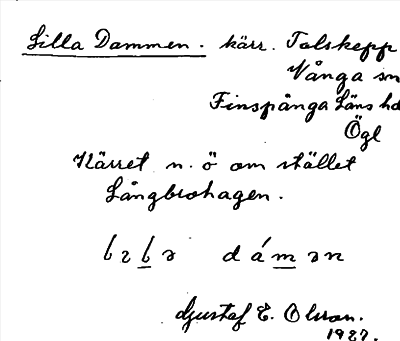 Lilla Dammen. kärr. Tolskepp
Vånga sn
Finspånga Läns hd
Ögl
Kärret n. ö om stället
Långbrohagen.
dámən
Gustaf E. Olsson.
1927.